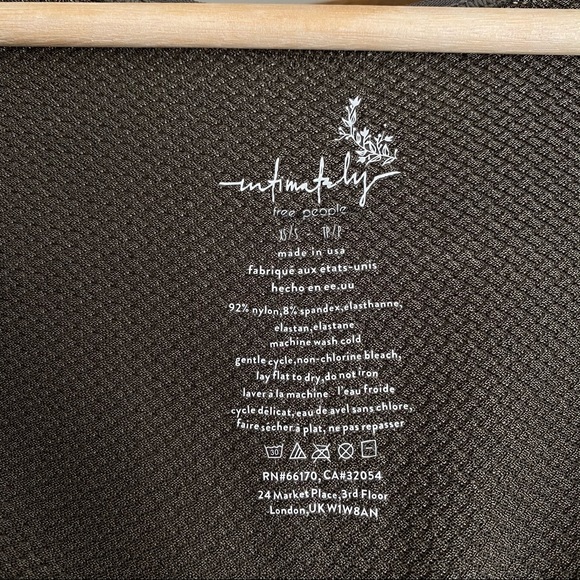 intimately
free people
XS/S - TP/P
made in usa
fabriqué aux etats-unis
hecho en ee.uu
92% nylon,8% spandex,elasthanne,
elastan,elastane
machine wash cold
gentle cycle,non-chlorine bleach,
lay flat to dry,do not iron
laver à la machine l'eau froide
cycle délicat,eau de avel sans chlore,
faire sécher à plat, ne pas repasser
30
RN#66170, CA#32054
24 Market Place,3rd Floor
London,UK W1W8AN